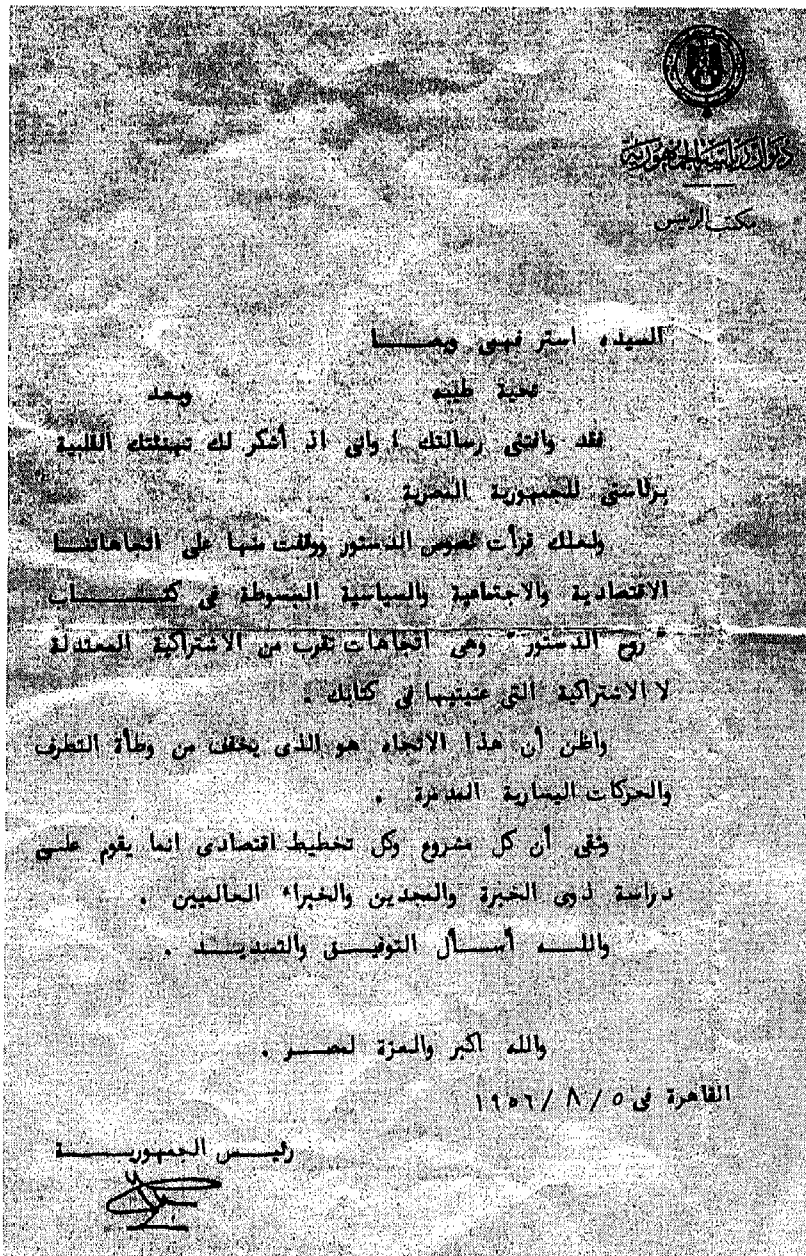 ديوان رياسة الجمهورية
مكتب الرئيس
السيده استر فهمى ويصــا
تحية طيبه وبعد
فقد وافتنى رسالتك ؛ وانى اذ أشكر لك تهنئتك القلبية
برئاستى للجمهورية المصرية .
ولعلك قرأت نصوص الدستور ووقفت منها على اتجاهاتنــا
الاقتصادية والاجتماعية والسياسية المبسوطة فى كتـــــاب
" روح الدستور " وهى اتجاهات تقرب من الاشتراكية المعتدلة
لا الاشتراكية التى عنيتيها فى كتابك .
واظن أن هذا الاتجاه هو الذى يخفف من وطأة التطرف
والحركات اليسارية المدمرة .
وثقى أن كل مشروع وكل تخطيط اقتصادى انما يقوم علــى
دراسة ذوى الخبرة والمجدين والخبراء العالميين .
واللــه أســأل التوفيــق والتسديــد .
والله اكبر والعزة لمصــر .
القاهرة فى ٥ / ٨ / ١٩٥٦
رئيــس الجمهوريـــــة